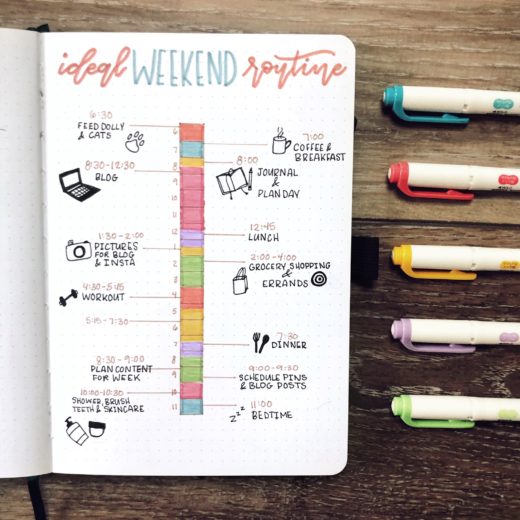 ideal WEEKEND routine
6:30
FEED DOLLY
& CATS
7:00
COFFEE &
BREAKFAST
8:30-12:30
BLOG
8:00
JOURNAL
&
PLAN DAY
12:45
LUNCH
1:30-2:00
PICTURES
FOR BLOG
& INSTA
2:00-4:00
GROCERY SHOPPING
&
ERRANDS
4:30-5:15
WORKOUT
5:15-7:30
7:30
DINNER
8:30-9:00
PLAN CONTENT
FOR WEEK
9:00-9:30
SCHEDULE PINS
& BLOG POSTS
10:00-10:30
SHOWER, BRUSH
TEETH & SKINCARE
11:00
BEDTIME
zzz
6
7
8
9
10
11
12
1
2
3
4
5
6
7
8
9
10
11